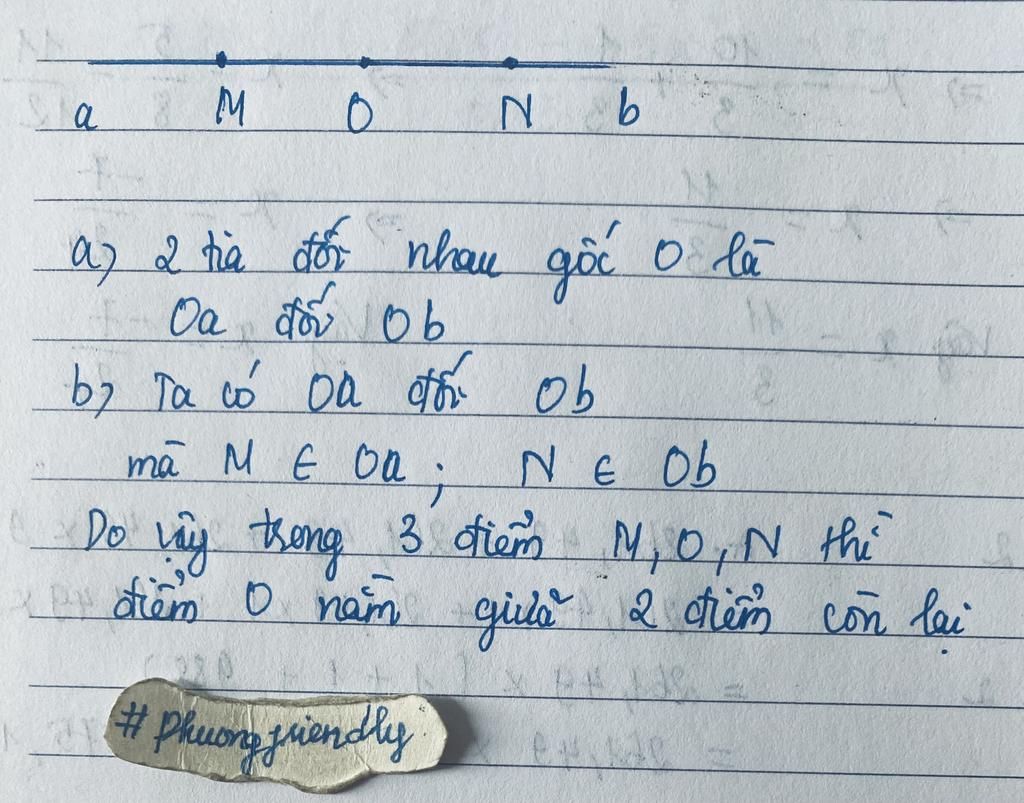 a M O N b
a) 2 tia đối nhau gốc O là
Oa đối Ob
b) Ta có Oa đối Ob
mà M ∈ Oa ; N ∈ Ob
Do vậy trong 3 điểm M, O, N thì
điểm O nằm giữa 2 điểm còn lại
# phuongfriendly